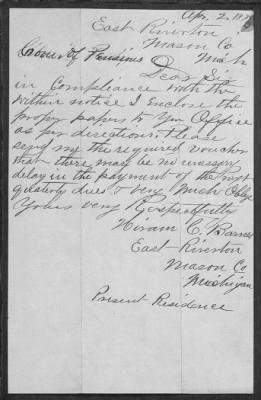 Apr. 2. 18
East Riverton
Mason Co
Mich
Comr of Pensions
Dear Sir
in Compliance with the
within notice I enclose the
proper papers to Yr Office
as per directions. Please
send me the required voucher
that there may be no unnecessary
delay in the payment of the
due & very Much Oblige
Yours very Respectfully
Hiram C. Barnes
East Riverton
Mason Co
Michigan
Present Residence